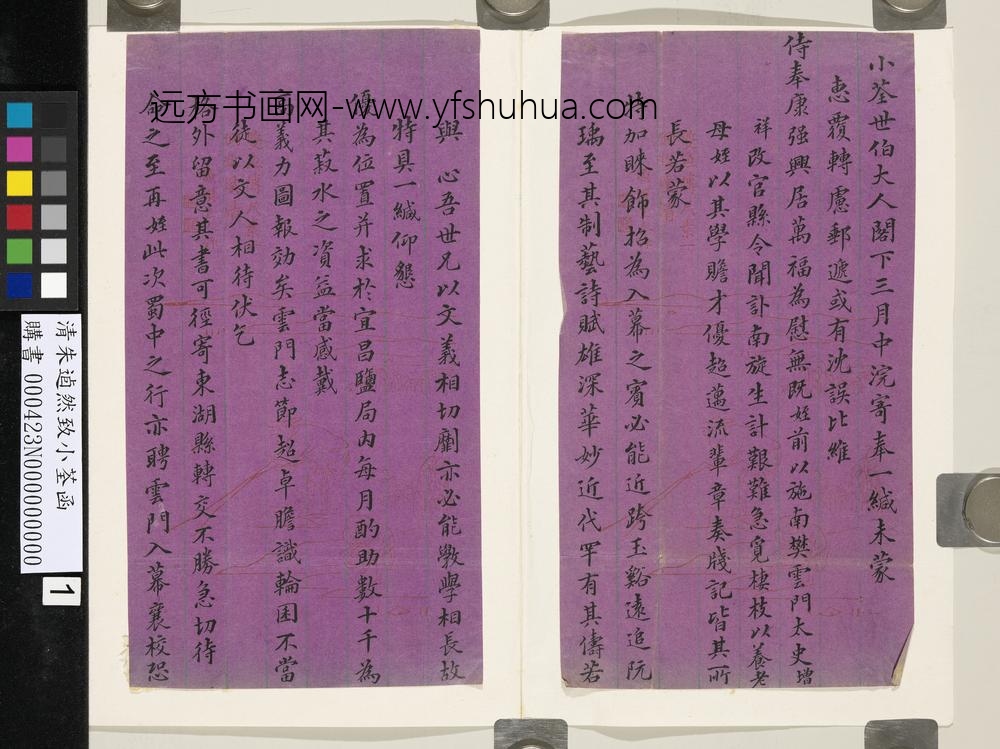 小荃世伯大人閣下三月中浣寄奉一緘未蒙
惠覆轉慮郵遞或有沈誤比維
侍奉康强興居萬福為慰無既姪前以施南樊雲門太史增
祥改官縣令聞訃南旋生計艱難急覓棲枝以養老
母姪以其學贍才優超邁流輩章奏牋記皆其所
長若蒙
特加睞飾招為入幕之賓必能近跨玉谿遠追阮
瑀至其制藝詩賦雄深華妙近代罕有其儔若
與 心吾世兄以文義相切劘亦必能斆學相長故
特具一緘仰懇
優為位置并求於宜昌鹽局內每月酌助數十千為
其菽水之資益當感戴
高義力圖報効矣雲門志節超卓膽識輪囷不當
徒以文人相待伏乞
格外留意其書可徑寄東湖縣轉交不勝急切待
命之至再姪此次蜀中之行亦聘雲門入幕襄校恐
远方书画网-www.yfshuhua.com
清朱逌然致小荃函
購書 000423N000000000
1